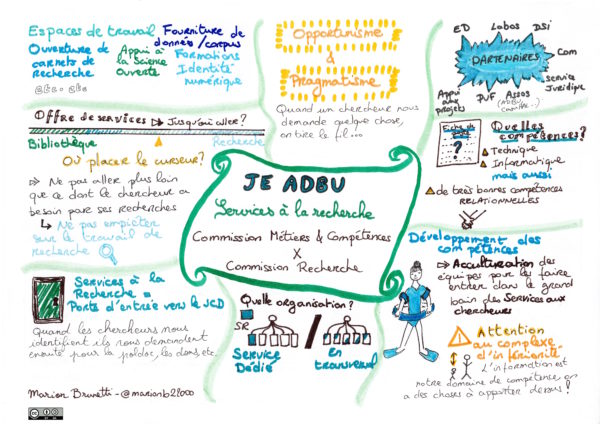 Espaces de travail
Ouverture de
carnets de
Recherche
etc. etc.
Appui à
la Science
Ouverte
Fourniture de
données/corpus
Formations
Identité
numérique
Opportunisme
&
Pragmatisme
Quand un chercheur nous
demande quelque chose,
on tire le fil...
ED Labos DSI
PARTENAIRES
Com
Service
Juridique
Appui
aux
Projets
PUF Assos
Offre de services ⇨ Jusqu'où aller?
Bibliothèque
Recherche
Où placer le curseur?
⇨ Ne pas aller plus loin
que ce dont le chercheur a
besoin par ses recherches
↳ Ne pas empiéter
sur le travail de
recherche
JE ADBU
Services à la recherche
Commission Métiers & Compétences
X
Commission Recherche
Fiche de
poste
?
Quelles
compétences?
Technique
Informatique
mais aussi
de très bonnes compétences
RELATIONNELLES
Développement des
compétences
⇨ Acculturation des
équipes par les faire
entrer dans le grand
bain des Services aux
chercheurs
Attention
au complexe
d'infériorité
L'information est
notre domaine de compétence, on
a des choses à apporter dessus!
Services à la
Recherche =
Porte d'entrée vers le SCD
Quand les chercheurs nous
identifient ils nous demandent
ensuite pour la poldoc, les dons, etc.
Quelle organisation?
SR
Service
Dédié
/
en
transversal
Marion Brunetti - @marionb21000